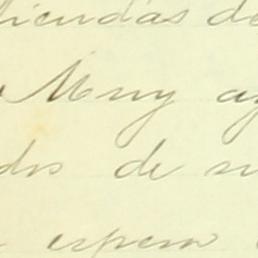 tiendas de
Muy ag
dos de su
espera